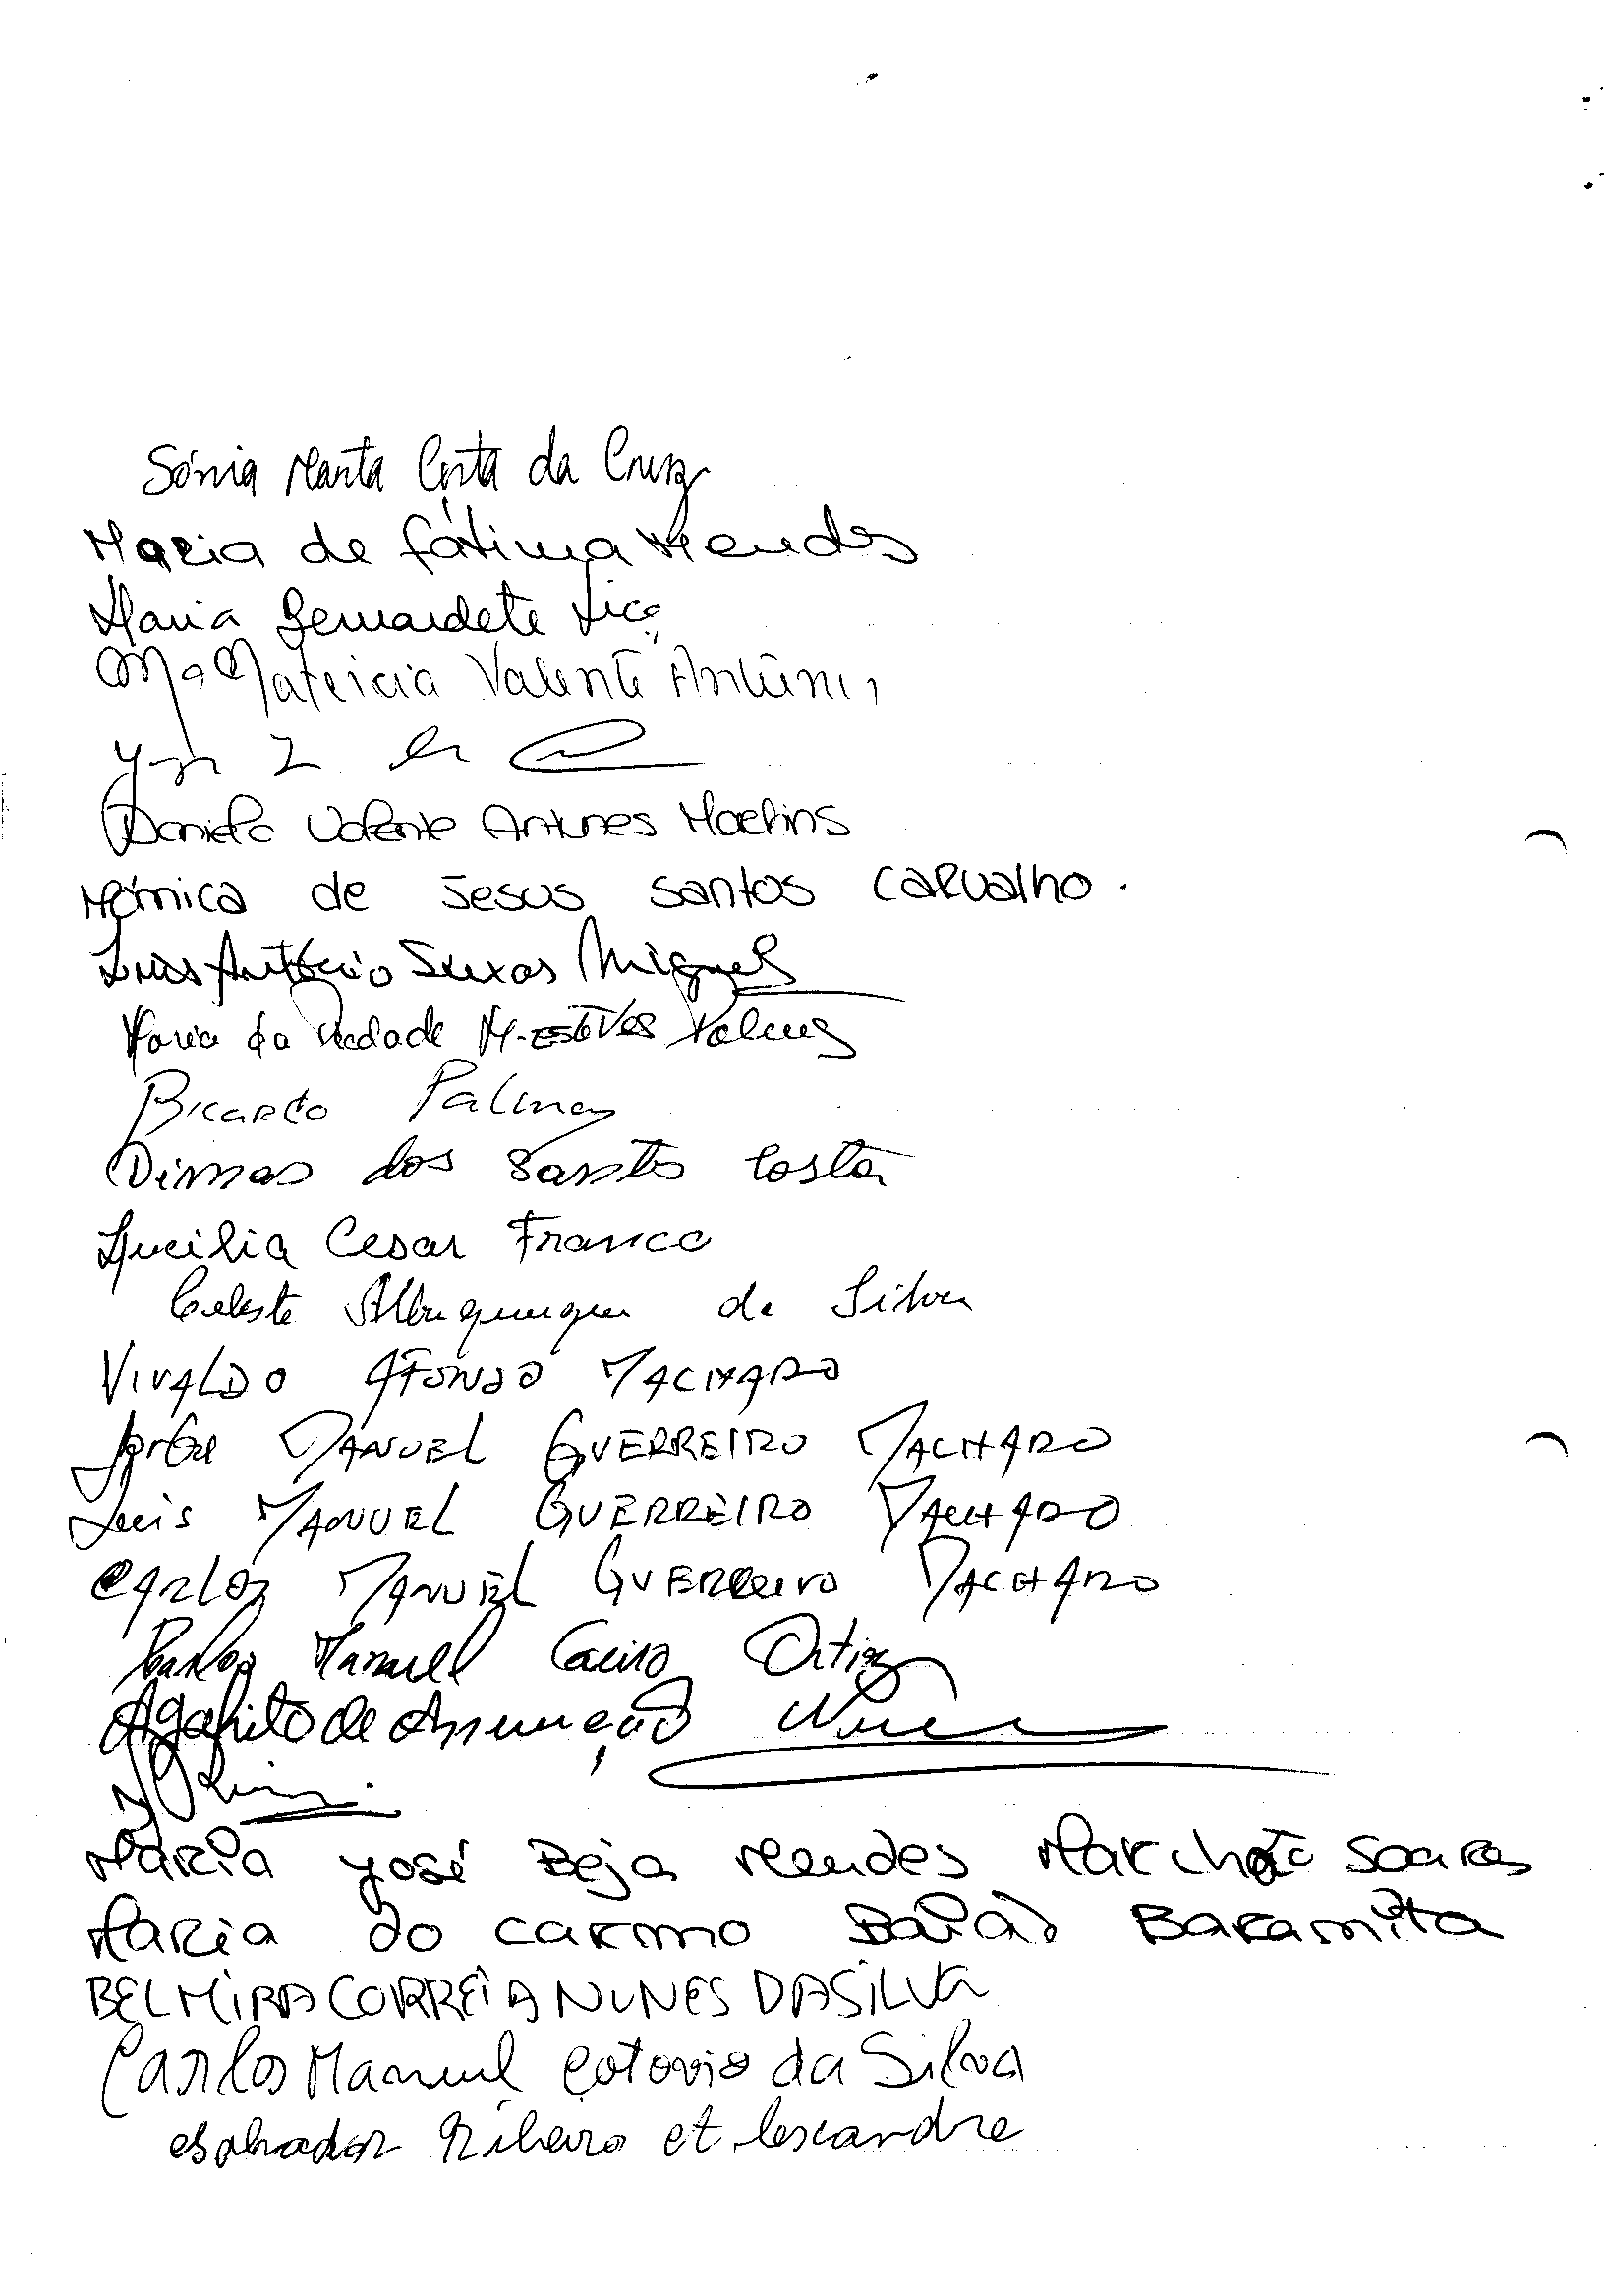 Sónia Marta Costa da Cruz
Maria de Fátima Mendes
Maria Bernardete
Mª Valente Antunes
Daniela Valente Antunes Martins
Mónica de Jesus Santos Carvalho.
Luis António Seixas Miguel
Maria da Piedade M. Esteves Palma
Ricardo Palma
Dimas dos Santos Costa
Lucília Cesar Franco
Celeste Albuquerque da Silva
VIVALDO AFONSO MACHADO
Jorge MANUEL GUERREIRO MACHADO
Luis MANUEL GUERREIRO MACHADO
CARLOS MANUEL GUERREIRO MACHADO
Carlos Manuel Ortiz
Agapito de Assunção
Maria José Beja Mendes Marchão Soares
Maria do Carmo Baião
BELMIRA CORREIA NUNES DA SILVA
Carlos Manuel Cotovio da Silva
Ribeiro